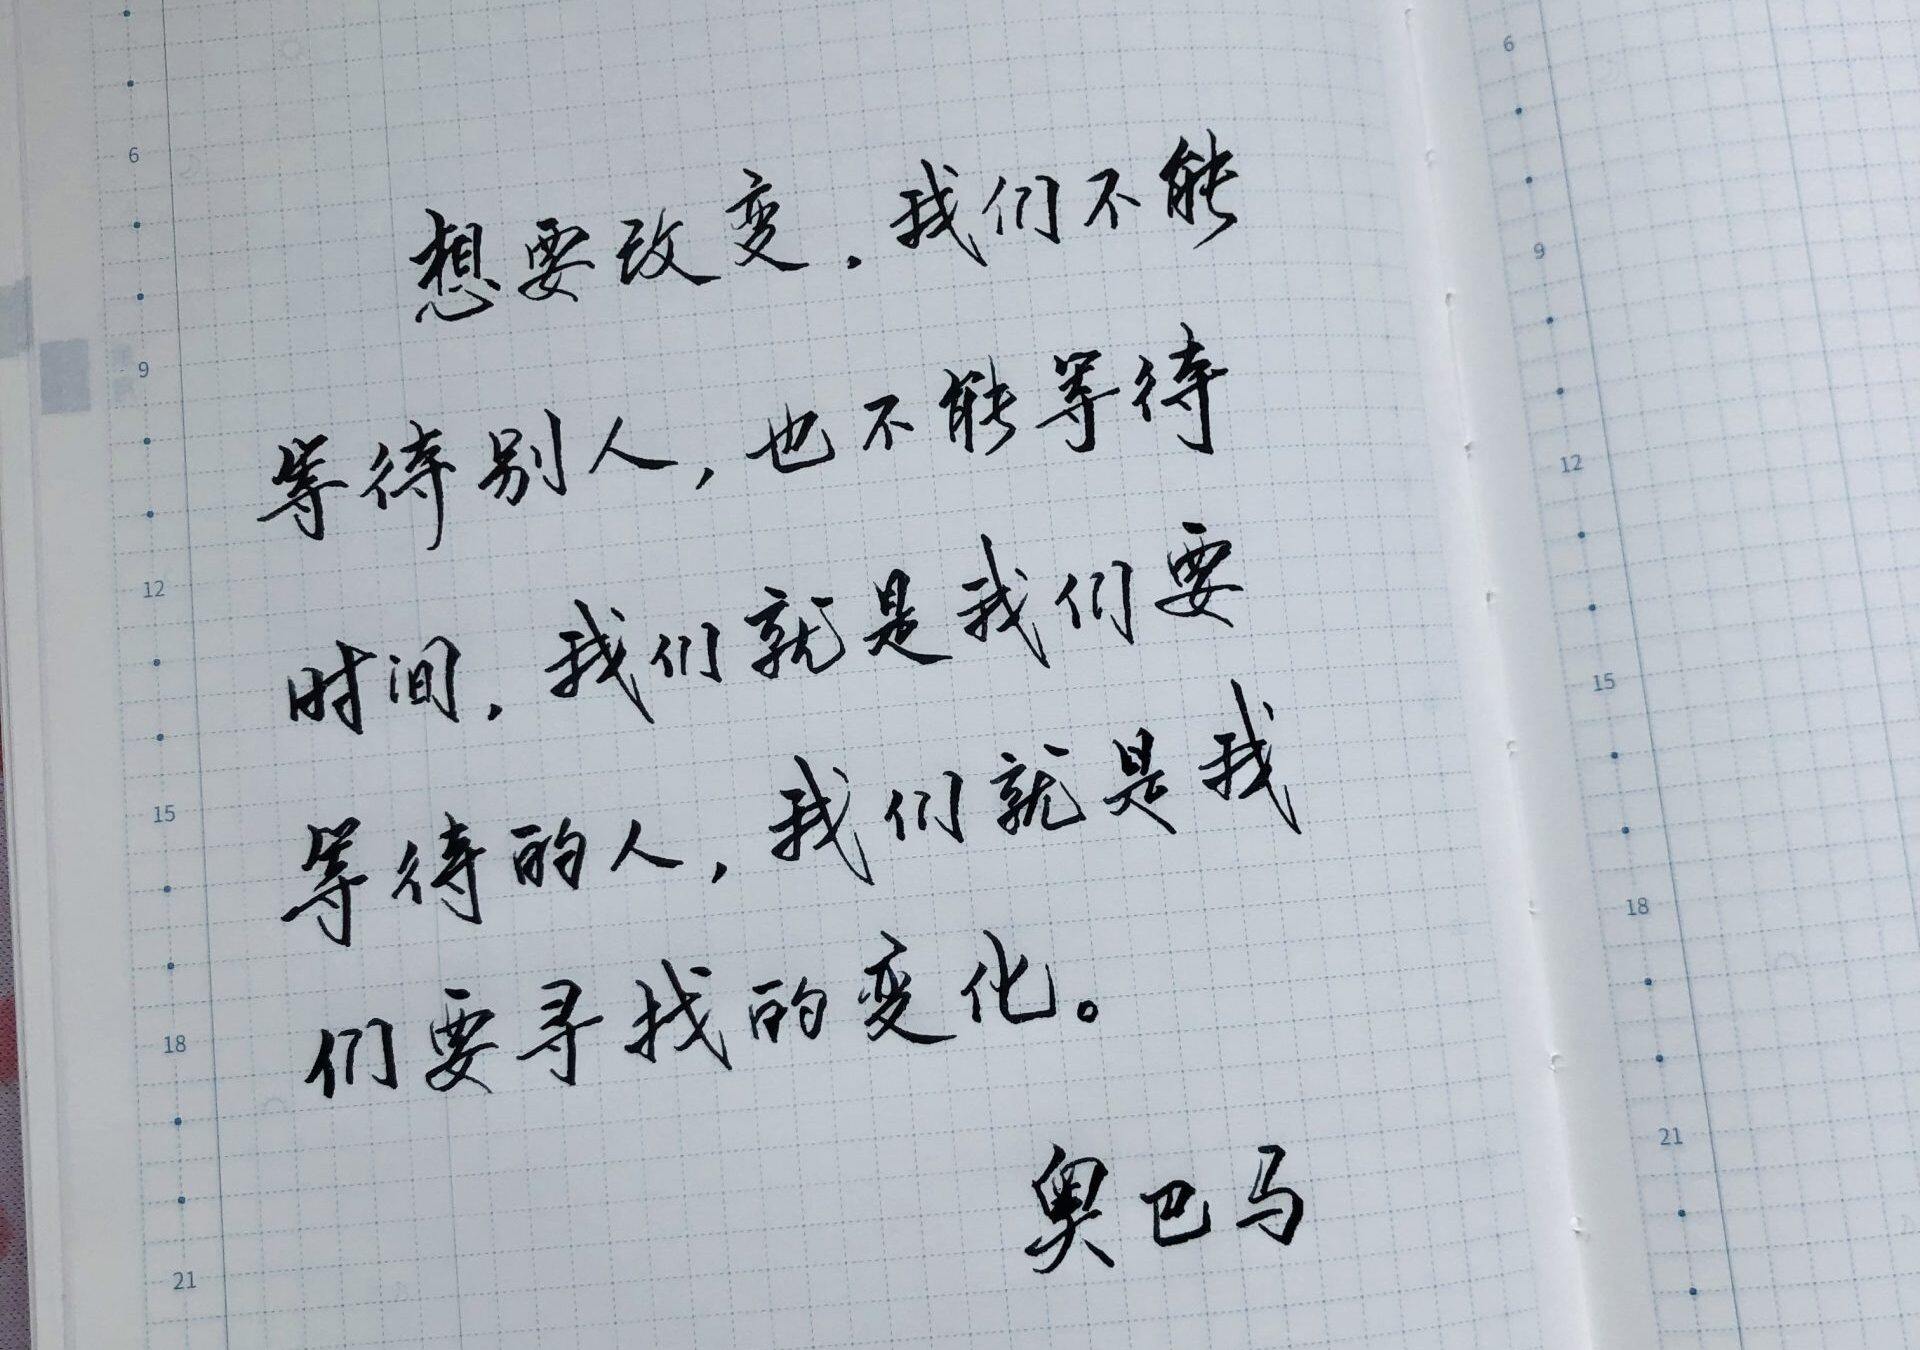 想要改变，我们不能
等待别人，也不能等待
时间，我们就是我们要
等待的人，我们就是我
们要寻找的变化。
奥巴马
6
9
12
15
18
21
6
9
12
15
18
21